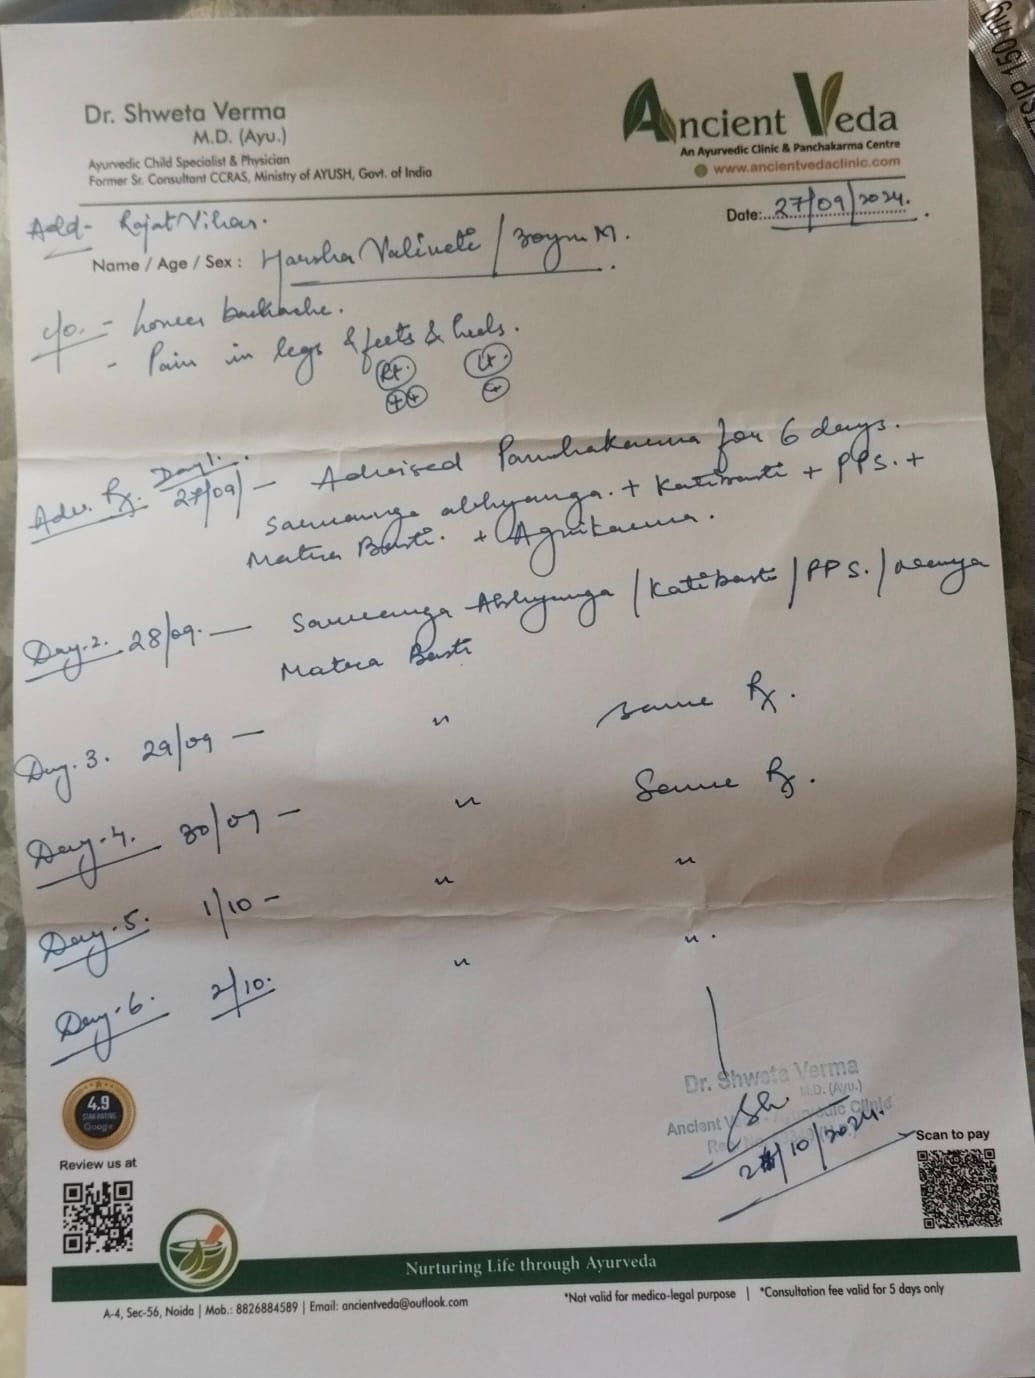 TSIP 150 mg
Dr. Shweta Verma
M.D. (Ayu.)
Ayurvedic Child Specialist & Physician
Former Sr. Consultant CCRAS, Ministry of AYUSH, Govt. of India
Ancient Veda
An Ayurvedic Clinic & Panchakarma Centre
www.ancientvedaclinic.com
Date: 27/09/2024.
Add- Rajat Vihar.
Name / Age / Sex : Harsha Valiveti / 30y M.
c/o. - Lower backache.
- Pain in legs & feets & heels.
Rt. Lt.
++ +
Adv. Rx. Day 1. 27/09/ - Advised Panchakarma for 6 days.
Sarvanga abhyanga. + Katibasti + PPS. +
Matra Basti. + Agnikarma.
Day-2. 28/09. - Sarvanga Abhyanga / Katibasti / PPS. /
Matra Basti
Day-3. 29/09 - " same Rx.
Day-4. 30/09 - " Same Rx.
Day-5. 1/10 - " "
Day-6. 2/10. " " .
Dr. Shweta Verma
M.D. (Ayu.)
Ancient Ayurvedic Clinic
/10/2024.
4.9
STAR RATING
Google
Review us at
Scan to pay
Nurturing Life through Ayurveda
A-4, Sec-56, Noida | Mob.: 8826884589 | Email: ancientveda@outlook.com
*Not valid for medico-legal purpose | *Consultation fee valid for 5 days only